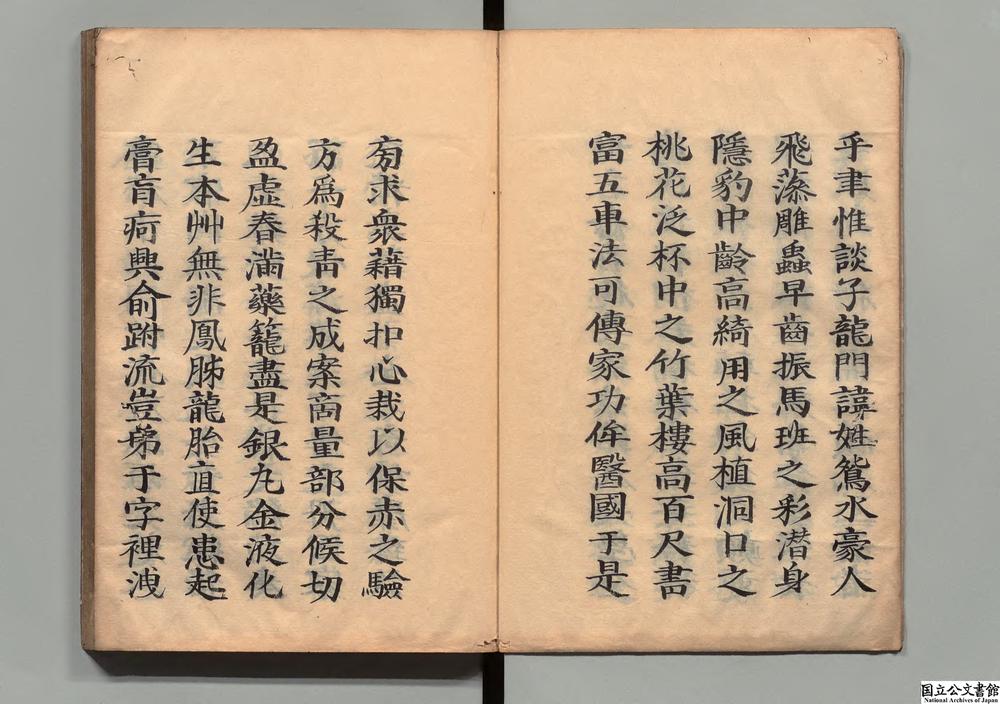 乎聿惟談子龍門諱姓鴛水豪人
飛藻雕蟲早齒振馬班之彩潜身
隱豹中齡高綺用之風植洞口之
桃花泛杯中之竹葉樓高百尺書
富五車法可傳家功侔醫國于是
旁求衆藉獨抑心裁以保赤之驗
方爲殺青之成案啇量部分候切
盈虚春滿藥籠盡是銀丸金液化
生本艸無非鳳胏龍胎直使患起
膏肓疴興俞跗流豈弟于字裡洩
国立公文書館
National Archives of Japan